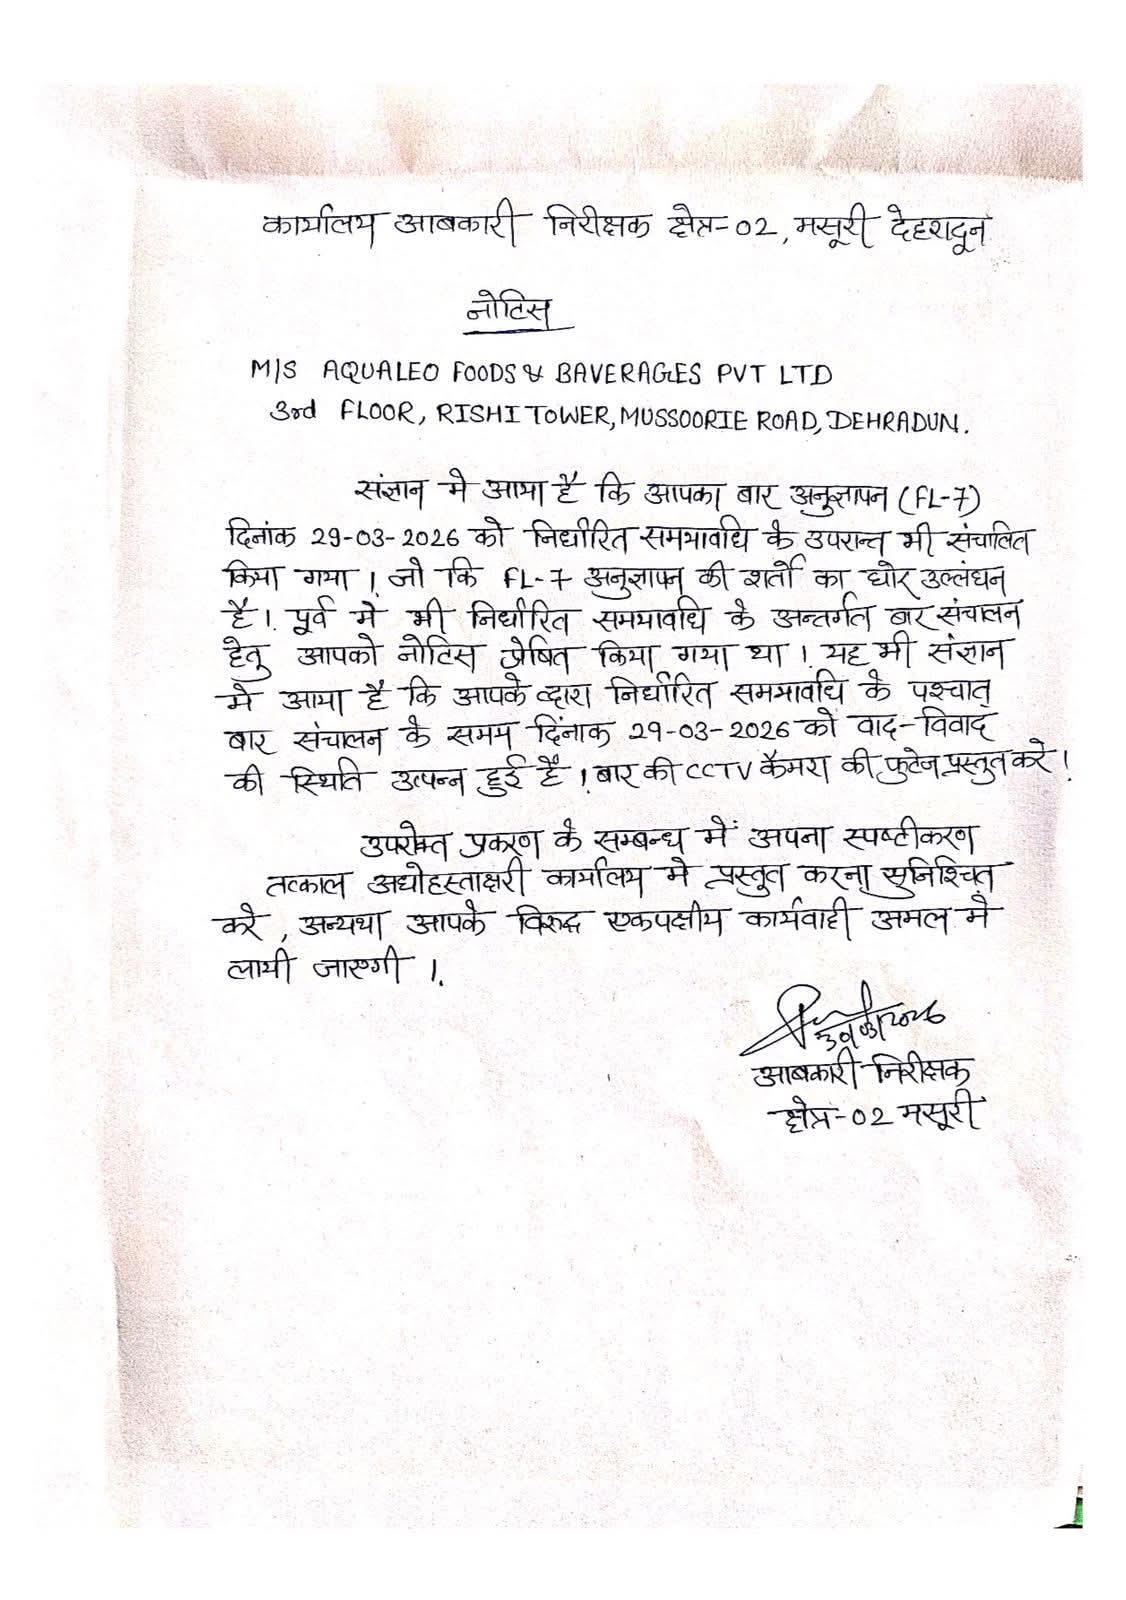 कार्यालय आबकारी निरीक्षक क्षेत्र-02, मसूरी देहरादून
नोटिस
M/S AQUALEO FOODS & BAVERAGES PVT LTD
3rd FLOOR, RISHI TOWER, MUSSOORIE ROAD, DEHRADUN.
संज्ञान मे आया है कि आपका बार अनुज्ञापन (FL-7)
दिनांक 29-03-2026 को निर्धारित समयावधि के उपरान्त भी संचालित
किया गया। जो कि FL-7 अनुज्ञापन की शर्तो का घोर उल्लंघन
है। पूर्व मे भी निर्धारित समयावधि के अन्तर्गत बार संचालन
हेतु आपको नोटिस प्रेषित किया गया था। यह भी संज्ञान
मे आया है कि आपके द्वारा निर्धारित समयावधि के पश्चात्
बार संचालन के समय दिंनाक 29-03-2026 को वाद-विवाद
की स्थिति उत्पन्न हुई है। बार की CCTV कैमरा की फुटेज प्रस्तुत करे।
उपरोक्त प्रकरण के सम्बन्ध में अपना स्पष्टीकरण
तत्काल अधोहस्ताक्षरी कार्यालय मे प्रस्तुत करना सुनिश्चित
करे, अन्यथा आपके विरुद्ध एकपक्षीय कार्यवाही अमल मे
लायी जाएगी।
आबकारी निरीक्षक
क्षेत्र-02 मसूरी